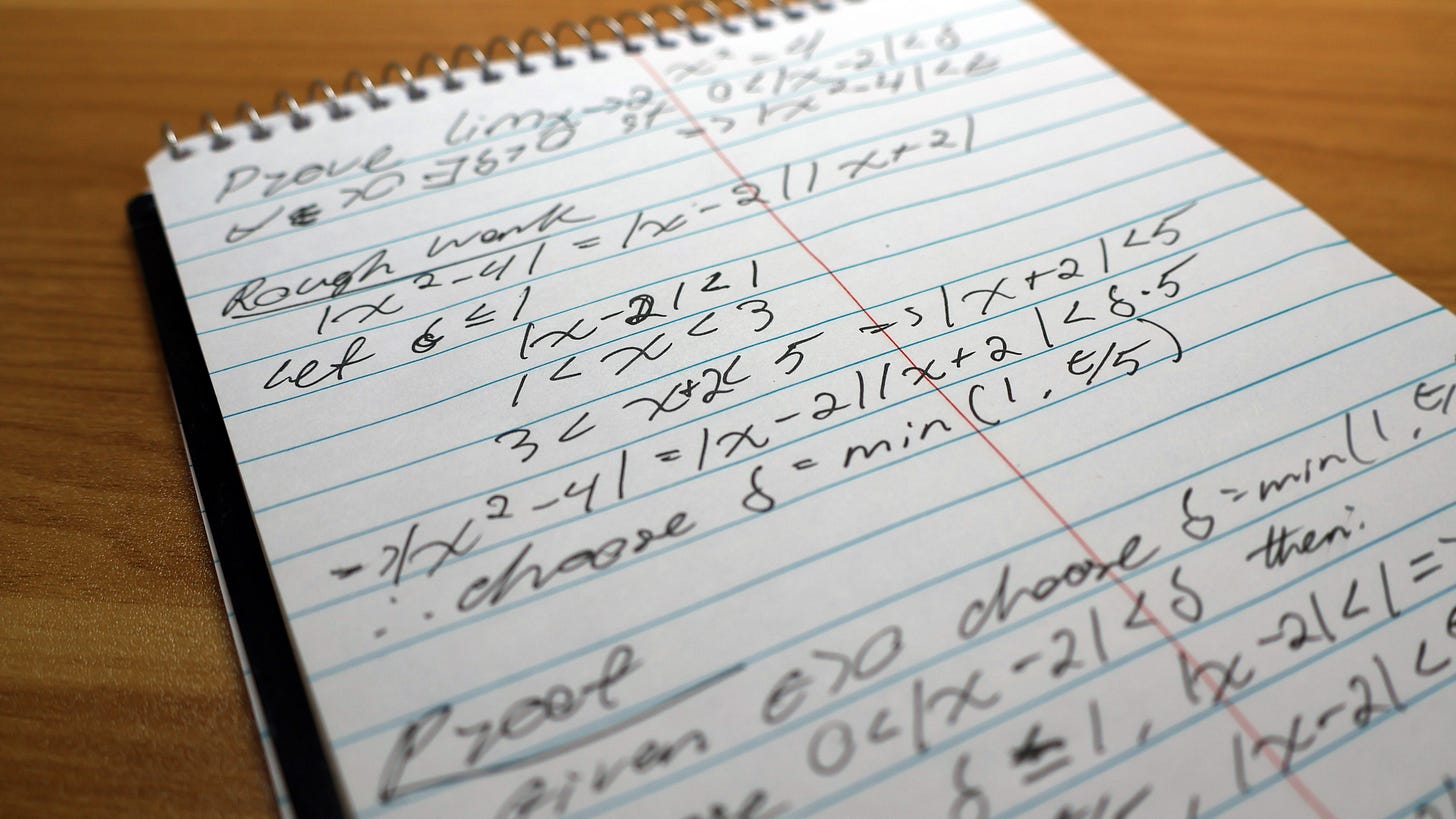 Prove lim x→2 x² = 4
∀ ε >0 ∃δ>0 st 0<|x-2|<δ
=> |x²-4|<ε
Rough work
|x²-4| = |x-2||x+2|
Let δ ≤ 1
|x-2|<1
1 < x < 3
3 < x+2< 5 => |x+2|<5
=>|x²-4| = |x-2||x+2|<δ·5
∴ choose δ = min(1, ε/5)
Proof
Given ε>0 choose δ=min(1, ε/
0<|x-2|<δ then:
δ ≤ 1, |x-2|<1 =>
|x-2|<